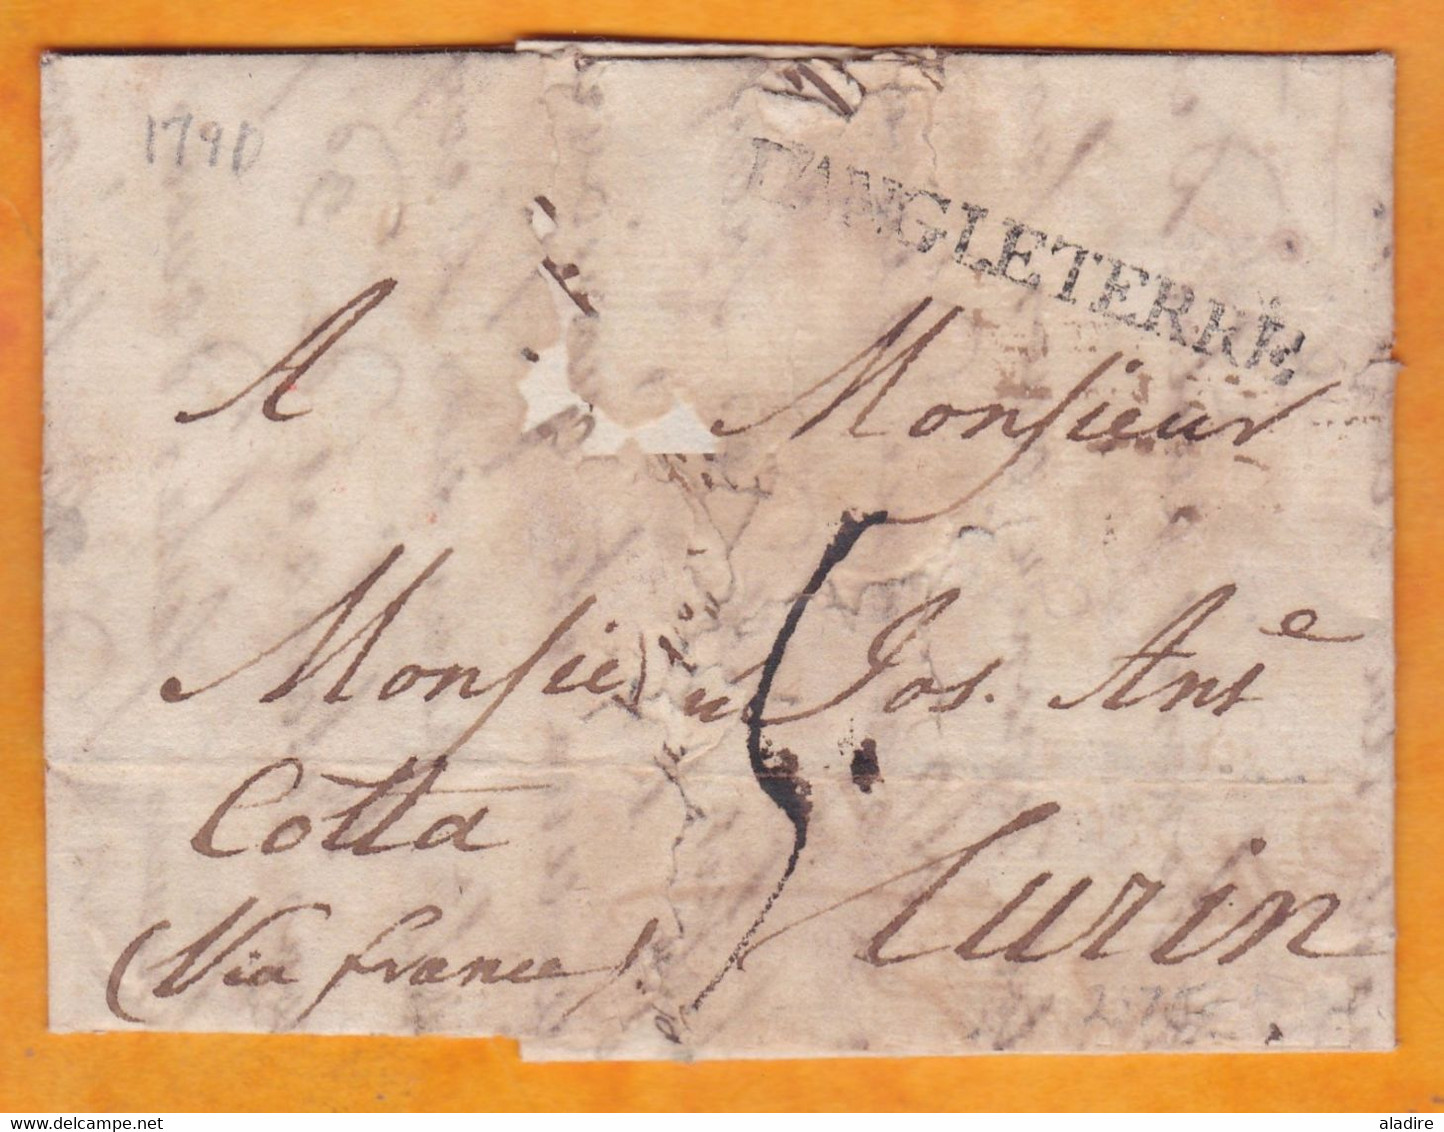 1791
D'ANGLETERRE
A Monsieur
Monsieur Jos. Ant^e
Cotta
Turin
(Via france)
5
www.delcampe.net
aladire